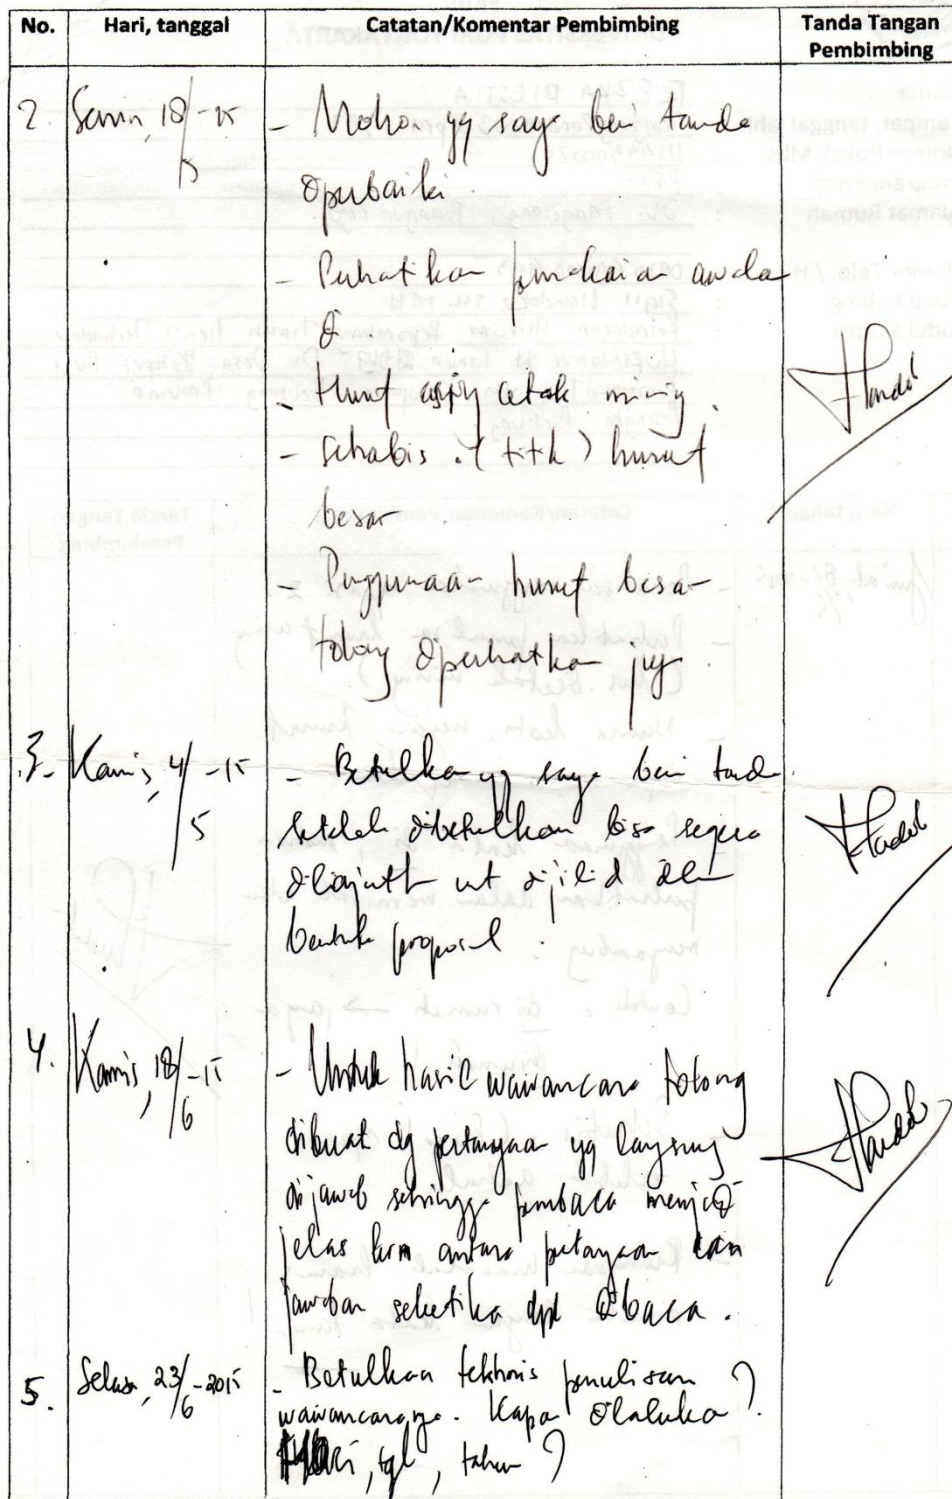 No. Hari, tanggal Catatan/Komentar Pembimbing Tanda Tangan
Pembimbing
2. Senin, 18/5 -15 - Mohon yg saya beri tanda
diperbaiki
- Perhatikan awalan
di
- Huruf asing cetak miring.
- Sehabis . (titik) huruf
besar
- Penggunaan huruf besar
tolong diperhatikan jg.
3. Kamis, 4/5 -15 - Betulkan yg saya beri tanda.
Setelah dibetulkan bisa segera
dilanjutk ut dijilid dlm
bentuk proposal.
4. Kamis, 18/6 -15 - Untuk hasil wawancara tolong
dibuat dg pertanyaan yg langsung
dijawab sehingga pembaca menjadi
jelas krn antara petanyaan dan
jawaban seketika dpt dibaca.
5. Selasa, 23/6 -2015 - Betulkan tekhnis penulisan
wawancaranya. Kapan dilakukan?
Hari, tgl, tahun?